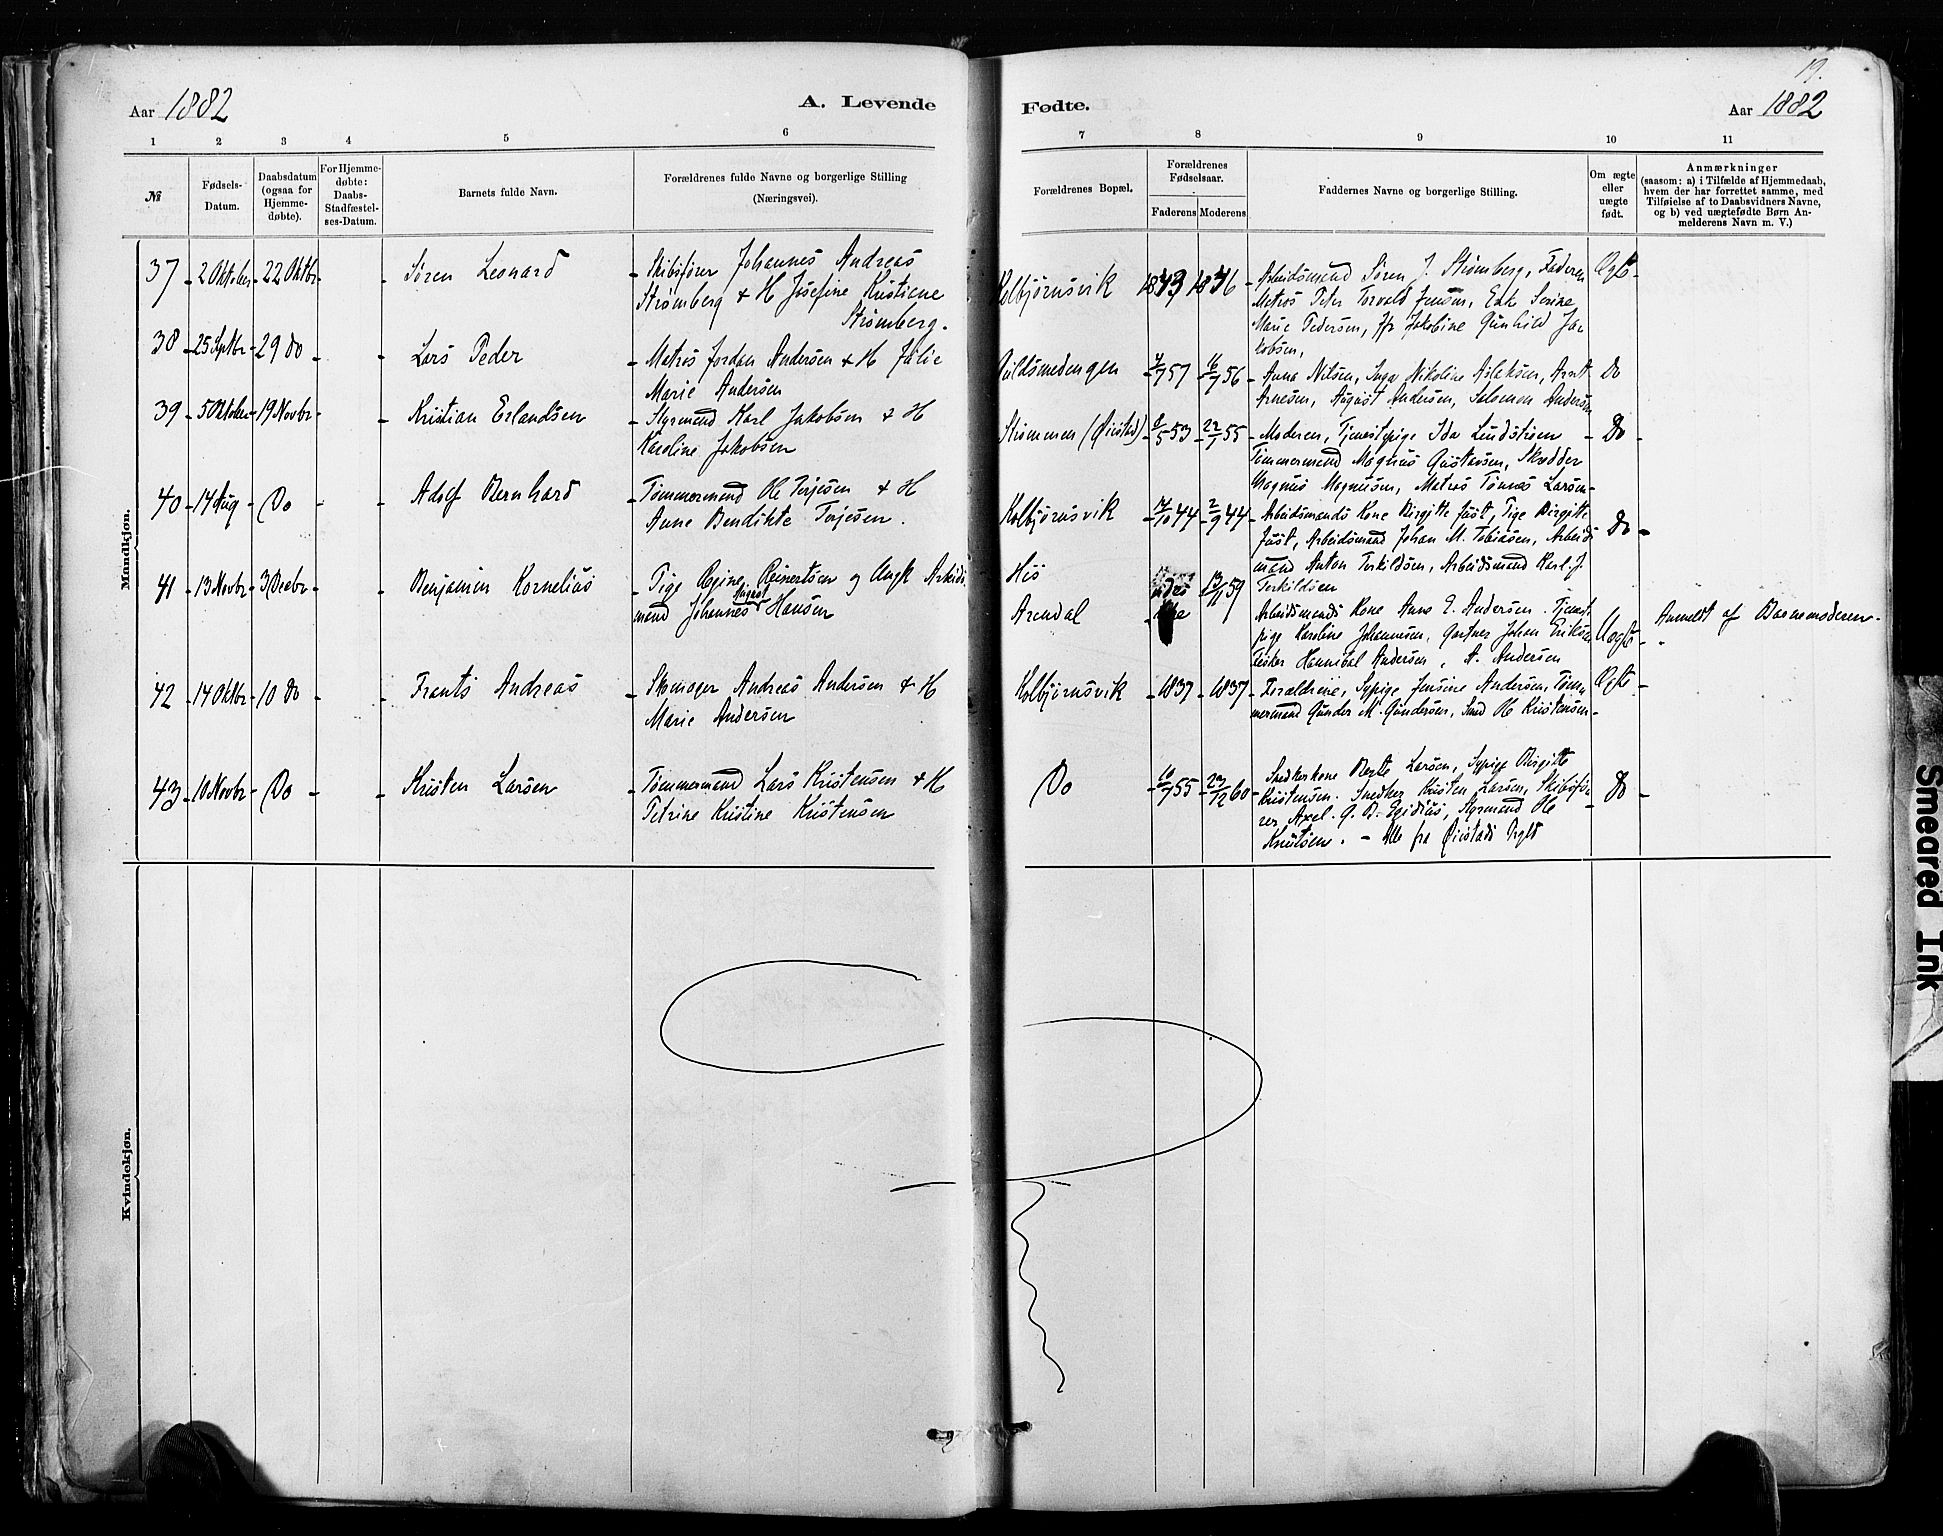 19.
Aar 1882
A. Levende
Fødte.
Aar 1882
1 2 3 4 5 6 7 8 9 10 11
№
Fødsels-
Datum.
Daabsdatum
(ogsaa for
Hjemme-
døbte).
For Hjemme-
døbte:
Daabs-
Stadfæstel-
ses-Datum.
Barnets fulde Navn.
Forældrenes fulde Navne og borgerlige Stilling
(Næringsvei).
Forældrenes Bopæl.
Forældrenes
Fødselsaar.
Faderens Moderens
Faddernes Navne og borgerlige Stilling.
Om ægte
eller
uægte
født.
Anmærkninger
(saasom: a) i Tilfælde af Hjemmedaab,
hvem der har forrettet samme, med
Tilføielse af to Daabsvidners Navne,
og b) ved uægtefødte Børn An-
melderens Navn m. V.)
Mandkjøn.
37 - 2 Oktober - 22 Oktbr - - Søren Leonard
- Skibsfører Johannes Andreas
Strømberg & H Josefine Kristiene
Strømberg.
Kolbjørnsvik 1843 1836
- Arbeidsmand Søren J. Strømberg, Faderen
Matros Peter Torvald Jensen, Enke Serine
Marie Pedersen, Jfr Jakobine Gunhild Ja-
kobsen,
Ægte -
38 - 25 Septbr - 29 do - - Lars Peder
- Matros Jordan Andersen & H Julie
Marie Andersen
Guldsmedengen 57 - 16/7 56
- Anna Nilsen, Inga Nikoline Aslaksen, Arnt
Arnesen, August Andersen, Salomon Andersen
Do
39 - 5 Oktober - 19 Novbr - - Kristian Erlandsen
- Styrmand Karl Jakobsen & H
Karoline Jakobsen
Strømmen (Øiestad) - 53 - 22/1 55
- Moderen, Tjenestepige Ida Lindstrøm
Tømmermand Magnus Gustavsen, Skrædder
Magnus Magnusen, Matros Tønnes Larsen -
- Do -
40 - 14 Aug - Do - - Adolf Bernhard
- Tømmermand Ole Terjesen & H
Anne Bendikte Terjesen.
Kolbjørnsvik - 44 - 2/9 44
- Arbeidsmands Kone Birgitte Just, Pige Birgitte
Just, Arbeidsmand Johan M. Tobiasen, Arbeids
mand Anton Terkildsen, Arbeidsmand Karl J.
Terkildsen
Do -
41 - 13 Novbr - 3 Decbr - - Benjamin Kornelius
- Pige Regine Reinertsen og Ungk Arbeids
mand Johannes August Hansen
His
Arendal
13/11 59
Arbeidsmands Kone Anne E. Andersen. Tjeneste
pige Karoline Johannsen, Gartner Johan Eriksen
Fisker Hannibal Andersen, A. Andersen
Uægte -
Anmeldt af Barnemoderen.
42 - 14 Oktbr - 10 do - - Frants Andreas
- Skomager Andreas Andersen & H
Marie Andersen
Kolbjørnsvik - 1837 - 1837
- Forældrene, Sypige Jensine Andersen, Tøm-
mermand Gunder M. Gundersen, Smed Ole Kristensen -
Ægte -
43 - 10 Novbr - Do - - Kristen Larsen
- Tømmermand Lars Kristensen & H
Petrine Kristine Kristensen
Do - 10/7 55 - 23/12 60
- Snedkerkone Berte Larsen, Sypige Birgitte
Kristensen. Snedker Kristen Larsen, Skibsfø-
rer Axel. G. B. Egidius, Styrmand Ole
Knutsen. - Alle fra Øiestads Sogn
- Do -
Kvindekjøn.
Smeared Ink